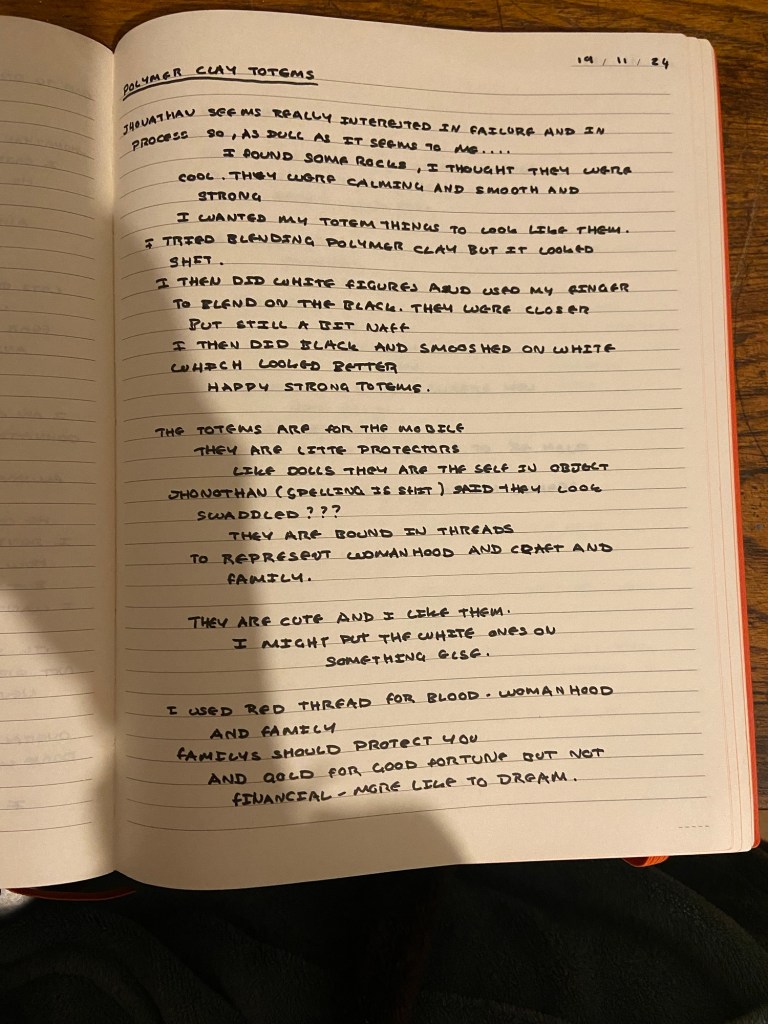 19 / 11 / 24
POLYMER CLAY TOTEMS
JHONATHAN SEEMS REALLY INTERESTED IN FAILURE AND IN
PROCESS SO, AS DULL AS IT SEEMS TO ME....
I FOUND SOME ROCKS, I THOUGHT THEY WERE
COOL. THEY WERE CALMING AND SMOOTH AND
STRONG
I WANTED MY TOTEM THINGS TO LOOK LIKE THEM.
I TRIED BLENDING POLYMER CLAY BUT IT LOOKED
SHIT.
I THEN DID WHITE FIGURES AND USED MY FINGER
TO BLEND ON THE BLACK. THEY WERE CLOSER
BUT STILL A BIT NAFF
I THEN DID BLACK AND SMOOSHED ON WHITE
WHICH LOOKED BETTER
HAPPY STRONG TOTEMS.
THE TOTEMS ARE FOR THE MOBILE
THEY ARE LITTE PROTECTORS
LIKE DOLLS THEY ARE THE SELF IN OBJECT
JHONOTHAN (SPELLING IS SHIT) SAID THEY LOOK
SWADDLED???
THEY ARE BOUND IN THREADS
TO REPRESENT WOMANHOOD AND CRAFT AND
FAMILY.
THEY ARE CUTE AND I LIKE THEM.
I MIGHT PUT THE WHITE ONES ON
SOMETHING ELSE.
I USED RED THREAD FOR BLOOD - WOMANHOOD
AND FAMILY
FAMILYS SHOULD PROTECT YOU
AND GOLD FOR GOOD FORTUNE BUT NOT
FINANCIAL - MORE LIKE TO DREAM.